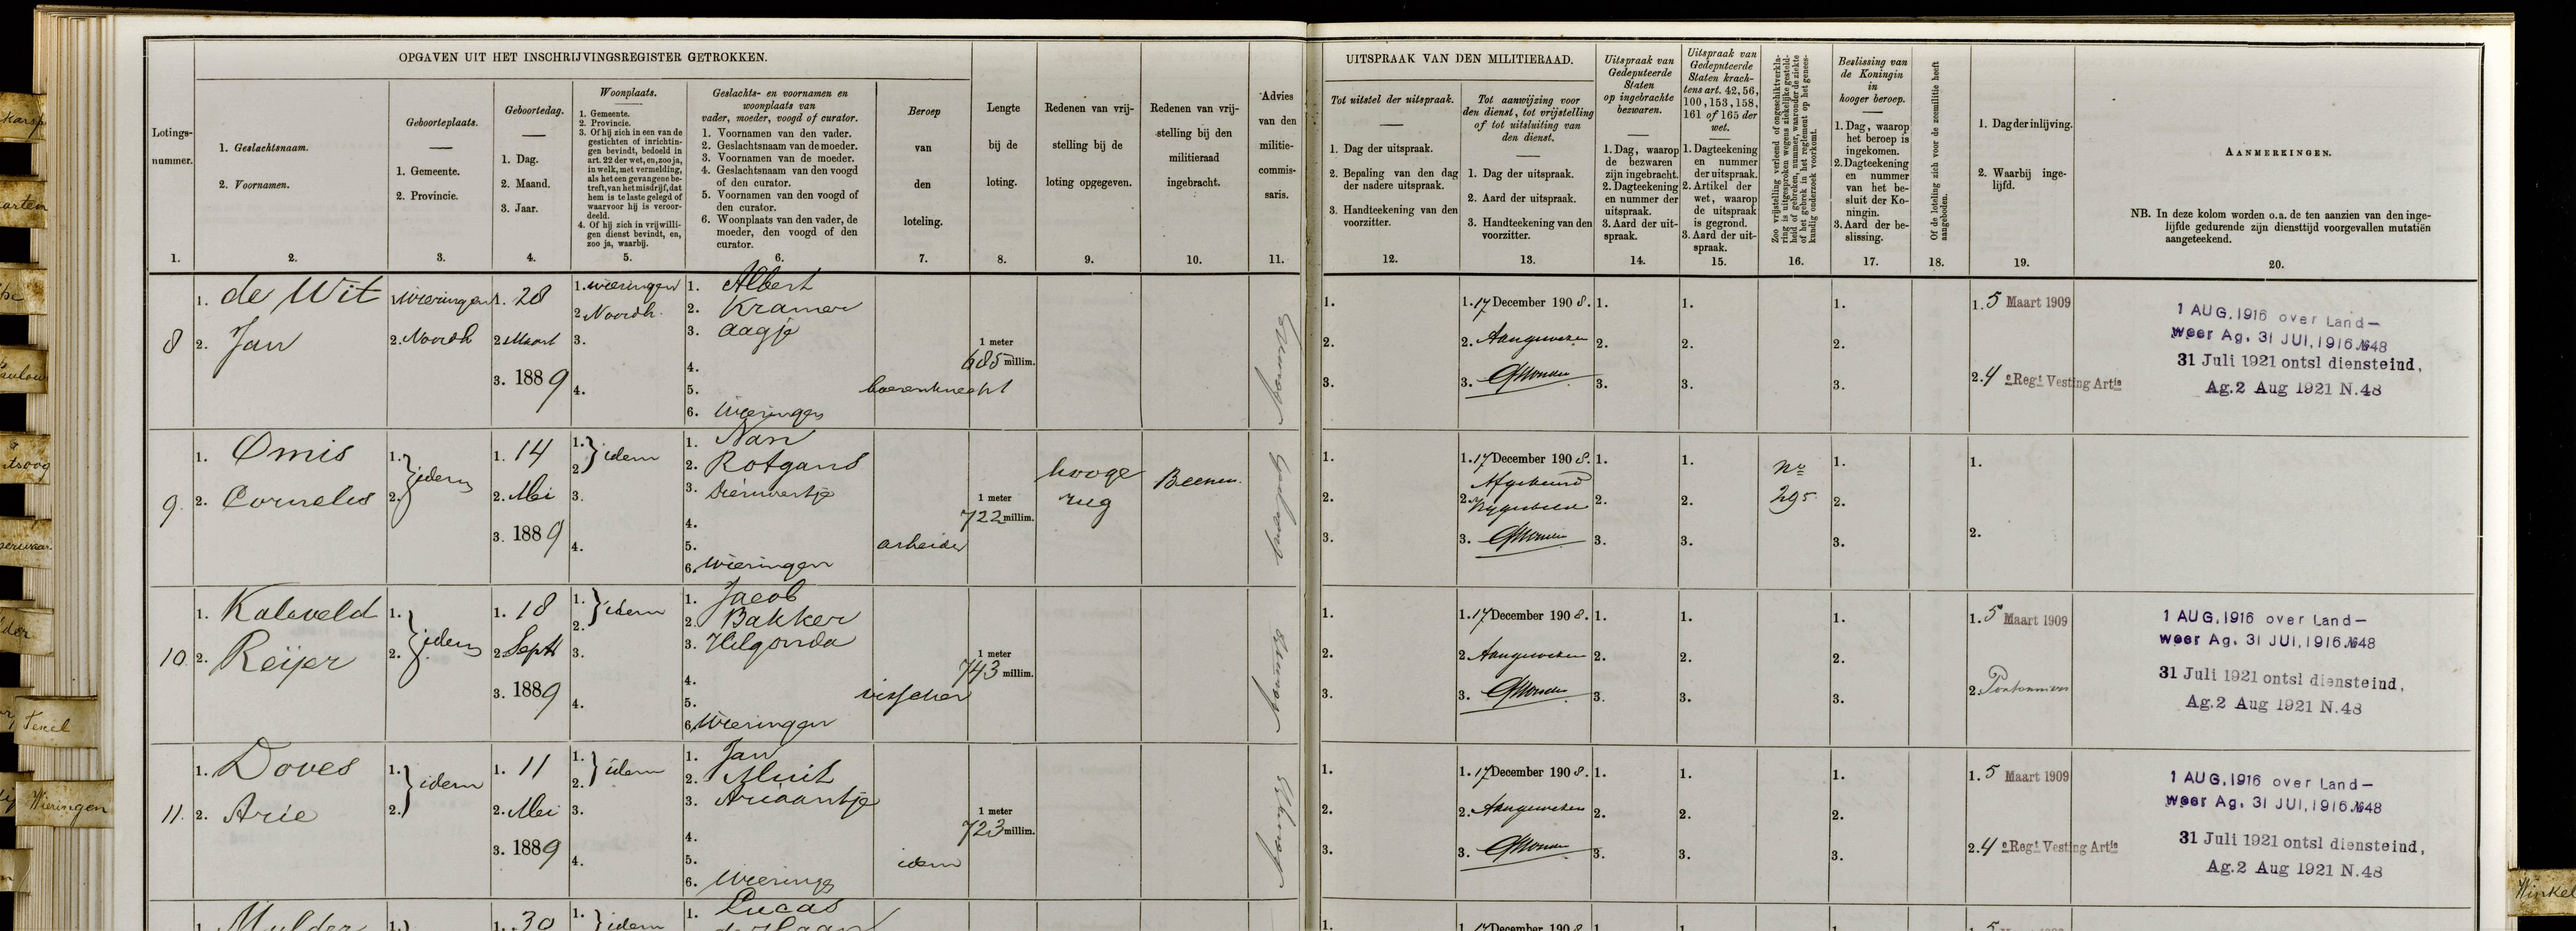 OPGAVEN UIT HET INSCHRIJVINGSREGISTER GETROKKEN.
Lotings-
nummer.
1.
1. Geslachtsnaam.
2. Voornamen.
2.
Geboorteplaats.
1. Gemeente.
2. Provincie.
3.
Geboortedag.
1. Dag.
2. Maand.
3. Jaar.
4.
Woonplaats.
1. Gemeente.
2. Provincie.
3. Of hij zich in een van de
gestichten of inrichtin-
gen bevindt, bedoeld in
art. 22 der wet, en, zoo ja,
in welk, met vermelding,
als het een gevangene be-
treft, van het misdrijf, dat
hem is te laste gelegd of
waarvoor hij is veroor-
deeld.
4. Of hij zich in vrijwilli-
gen dienst bevindt, en,
zoo ja, waarbij.
5.
Geslachts- en voornamen en
woonplaats van
vader, moeder, voogd of curator.
1. Voornamen van den vader.
2. Geslachtsnaam van de moeder.
3. Voornamen van de moeder.
4. Geslachtsnaam van den voogd
of den curator.
5. Voornamen van den voogd of
den curator.
6. Woonplaats van den vader, de
moeder, den voogd of den
curator.
6.
Beroep
van
den
loteling.
7.
Lengte
bij de
loting.
8.
Redenen van vrij-
stelling bij de
loting opgegeven.
9.
Redenen van vrij-
stelling bij den
militieraad
ingebracht.
10.
Advies
van den
militie-
commis-
saris.
11.
UITSPRAAK VAN DEN MILITIERAAD.
Tot uitstel der uitspraak.
1. Dag der uitspraak.
2. Bepaling van den dag
der nadere uitspraak.
3. Handteekening van den
voorzitter.
12.
Tot aanwijzing voor
den dienst, tot vrijstelling
of tot uitsluiting van
den dienst.
1. Dag der uitspraak.
2. Aard der uitspraak.
3. Handteekening van den
voorzitter.
13.
Uitspraak van
Gedeputeerde
Staten
op ingebrachte
bezwaren.
1. Dag, waarop
de bezwaren
zijn ingebracht.
2. Dagteekening
en nummer der
uitspraak.
3. Aard der uit-
spraak.
14.
Uitspraak van
Gedeputeerde
Staten krach-
tens art. 42, 56,
100, 153, 158,
161 of 165 der
wet.
1. Dagteekening
en nummer
der uitspraak.
2. Artikel der
wet, waarop
de uitspraak
is gegrond.
3. Aard der uit-
spraak.
15.
Zoo vrijstelling verleend of ongeschiktverkla-
ring is uitgesproken wegens ziekelijke gesteld-
heid of gebreken, nummer, waaronder de ziekte
of het gebrek in het reglement op het genees-
kundig onderzoek voorkomt.
16.
Beslissing van
de Koningin
in
hooger beroep.
1. Dag, waarop
het beroep is
ingekomen.
2. Dagteekening
en nummer
van het be-
sluit der Ko-
ningin.
3. Aard der be-
slissing.
17.
Of de loteling zich voor de zeemilitie heeft
aangeboden.
18.
1. Dag der inlijving.
2. Waarbij inge-
lijfd.
19.
AANMERKINGEN.
NB. In deze kolom worden o.a. de ten aanzien van den inge-
lijfde gedurende zijn diensttijd voorgevallen mutatiën
aangeteekend.
20.
8
1. de Wit
2. Jan
1. Wieringen
2. Noordh
1. 28
2. Maart
3. 1889
1. Wieringen
2. Noordh.
3.
4.
1. Albert
2. Kramer
3. Aagje
4.
5.
6. Wieringen
boerenknecht
1 meter
685 millim.
1.
2.
3.
1. 17 December 1908.
2. Aangewezen
3.
1.
2.
3.
1.
2.
3.
1.
2.
3.
1. 5 Maart 1909
2. 4 e Regt Vesting Artie
1 AUG. 1916 over Land-
weer Ag. 31 JUl, 1916 №48
31 Juli 1921 ontsl diensteind,
Ag. 2 Aug 1921 N. 48
9.
1. Omis
2. Cornelis
1.
2. } idem
1. 14
2. Mei
3. 1889
1.
2. } idem
3.
4.
1. Nan
2. Rotgans
3. Sieuwertje
4.
5.
6. Wieringen
arbeider
1 meter
722 millim.
hooge
rug
Beenen.
1.
2.
3.
1. 17 December 1908.
2. Afgekeurd
3.
1.
2.
3.
1.
2.
3.
No
295
1.
2.
3.
1.
2.
10.
1. Kaleveld
2. Reijer
1.
2. } idem
1. 18
2. Septr
3. 1889
1.
2. } idem
3.
4.
1. Jacob
2. Bakker
3. Hilgonda
4.
5.
6. Wieringen
visscher
1 meter
743 millim.
1.
2.
3.
1. 17 December 1908.
2. Aangewezen
3.
1.
2.
3.
1.
2.
3.
1.
2.
3.
1. 5 Maart 1909
2. Pontonniers
1 AUG. 1916 over Land-
weer Ag. 31 JUl, 1916 №48
31 Juli 1921 ontsl diensteind,
Ag. 2 Aug 1921 N. 48
11.
1. Doves
2. Arie
1.
2. } idem
1. 11
2. Mei
3. 1889
1.
2. } idem
3.
4.
1. Jan
2. Mult
3. Ariaantje
4.
5.
6. Wieringen
idem
1 meter
723 millim.
1.
2.
3.
1. 17 December 1908.
2. Aangewezen
3.
1.
2.
3.
1.
2.
3.
1.
2.
3.
1. 5 Maart 1909
2. 4 e Regt Vesting Artie
1 AUG. 1916 over Land-
weer Ag. 31 JUl, 1916 №48
31 Juli 1921 ontsl diensteind,
Ag. 2 Aug 1921 N. 48
1. Mulder
1.
1. 30
1. } idem
1. Lucas
de Haan
1.
1. 17 December 1908
1.
1.
1.
1. 5
Texel
Wieringen
Winkel